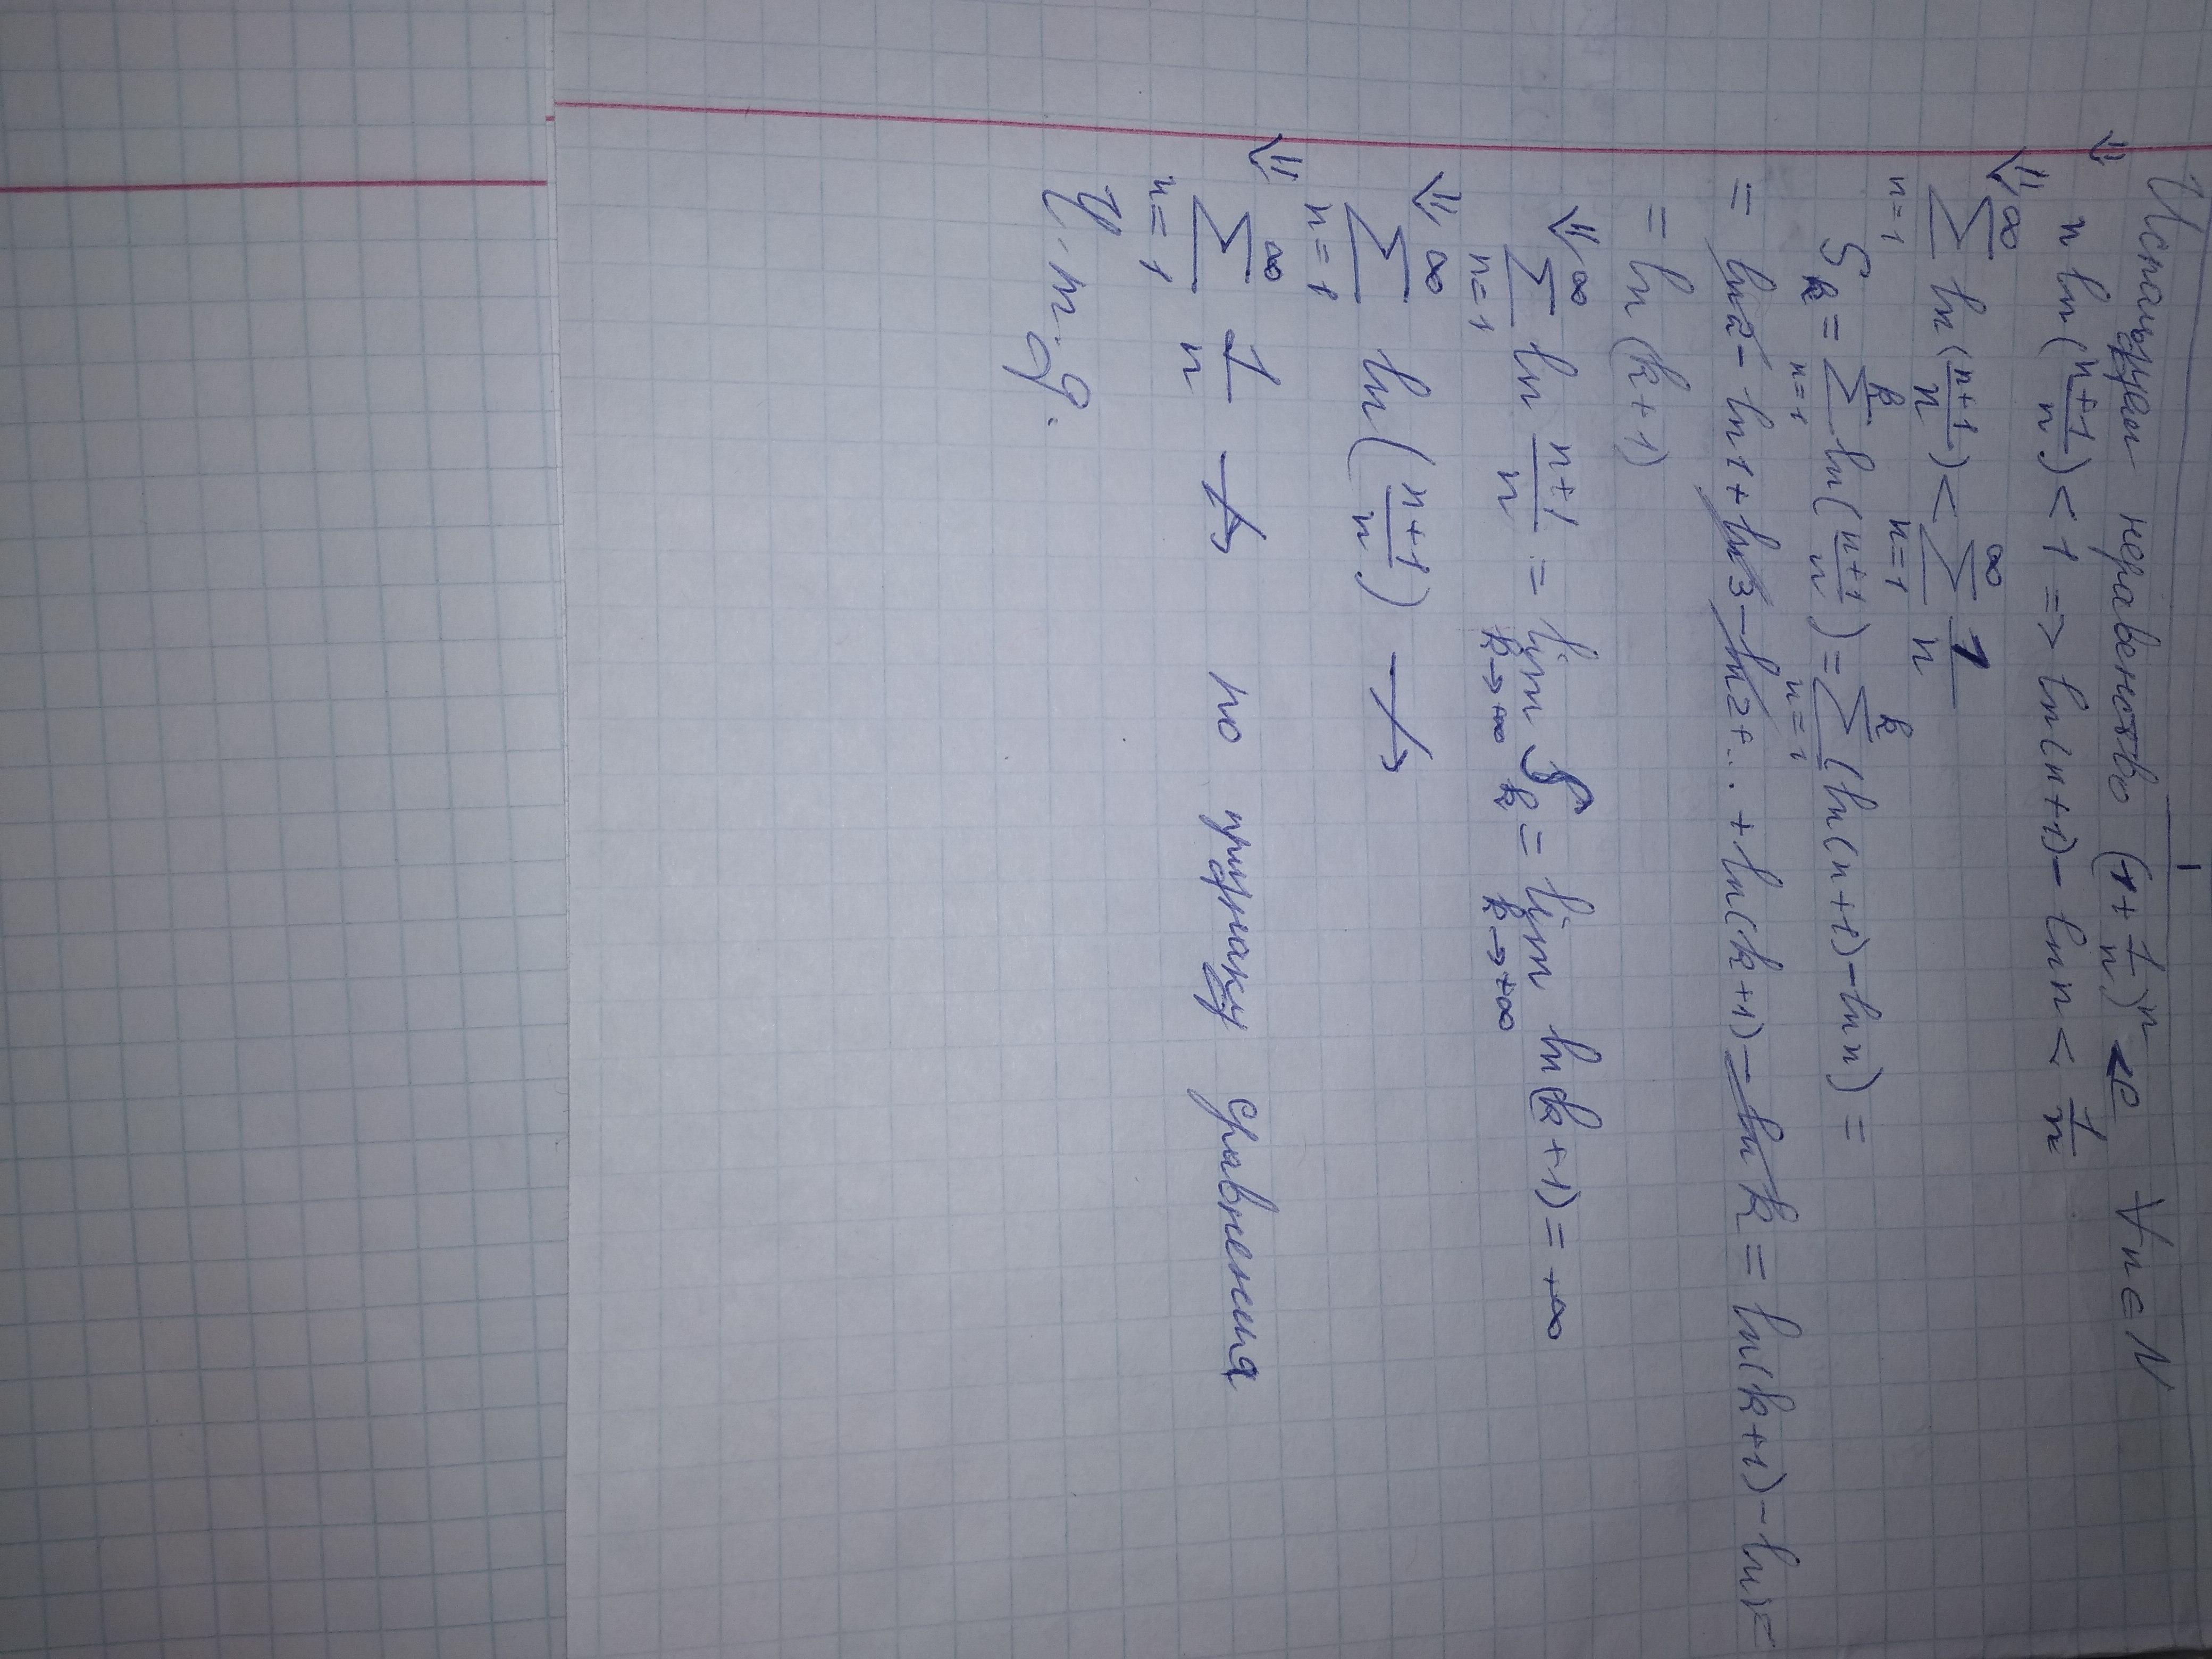 Используем неравенство (1+1/n)^n < e ∀n∈N
⇓ n ln(n+1/n) < 1 => ln(n+1) - ln n < 1/n
⇓ ∑_{n=1}^{∞} ln(n+1/n) < ∑_{n=1}^{∞} 1/n
S_k = ∑_{n=1}^{k} ln(n+1/n) = ∑_{n=1}^{k} (ln(n+1) - ln n) =
= ln2 - ln1 + ln3 - ln2 + ... + ln(k+1) - ln k = ln(k+1) - ln1 =
= ln(k+1)
⇓ ∑_{n=1}^{∞} ln n+1/n = lim_{k→+∞} S_k = lim_{k→+∞} ln(k+1) = +∞
⇓ ∑_{n=1}^{∞} ln(n+1/n) ↛
⇓ ∑_{n=1}^{∞} 1/n ↛ по признаку сравнения
Ч.т.д.